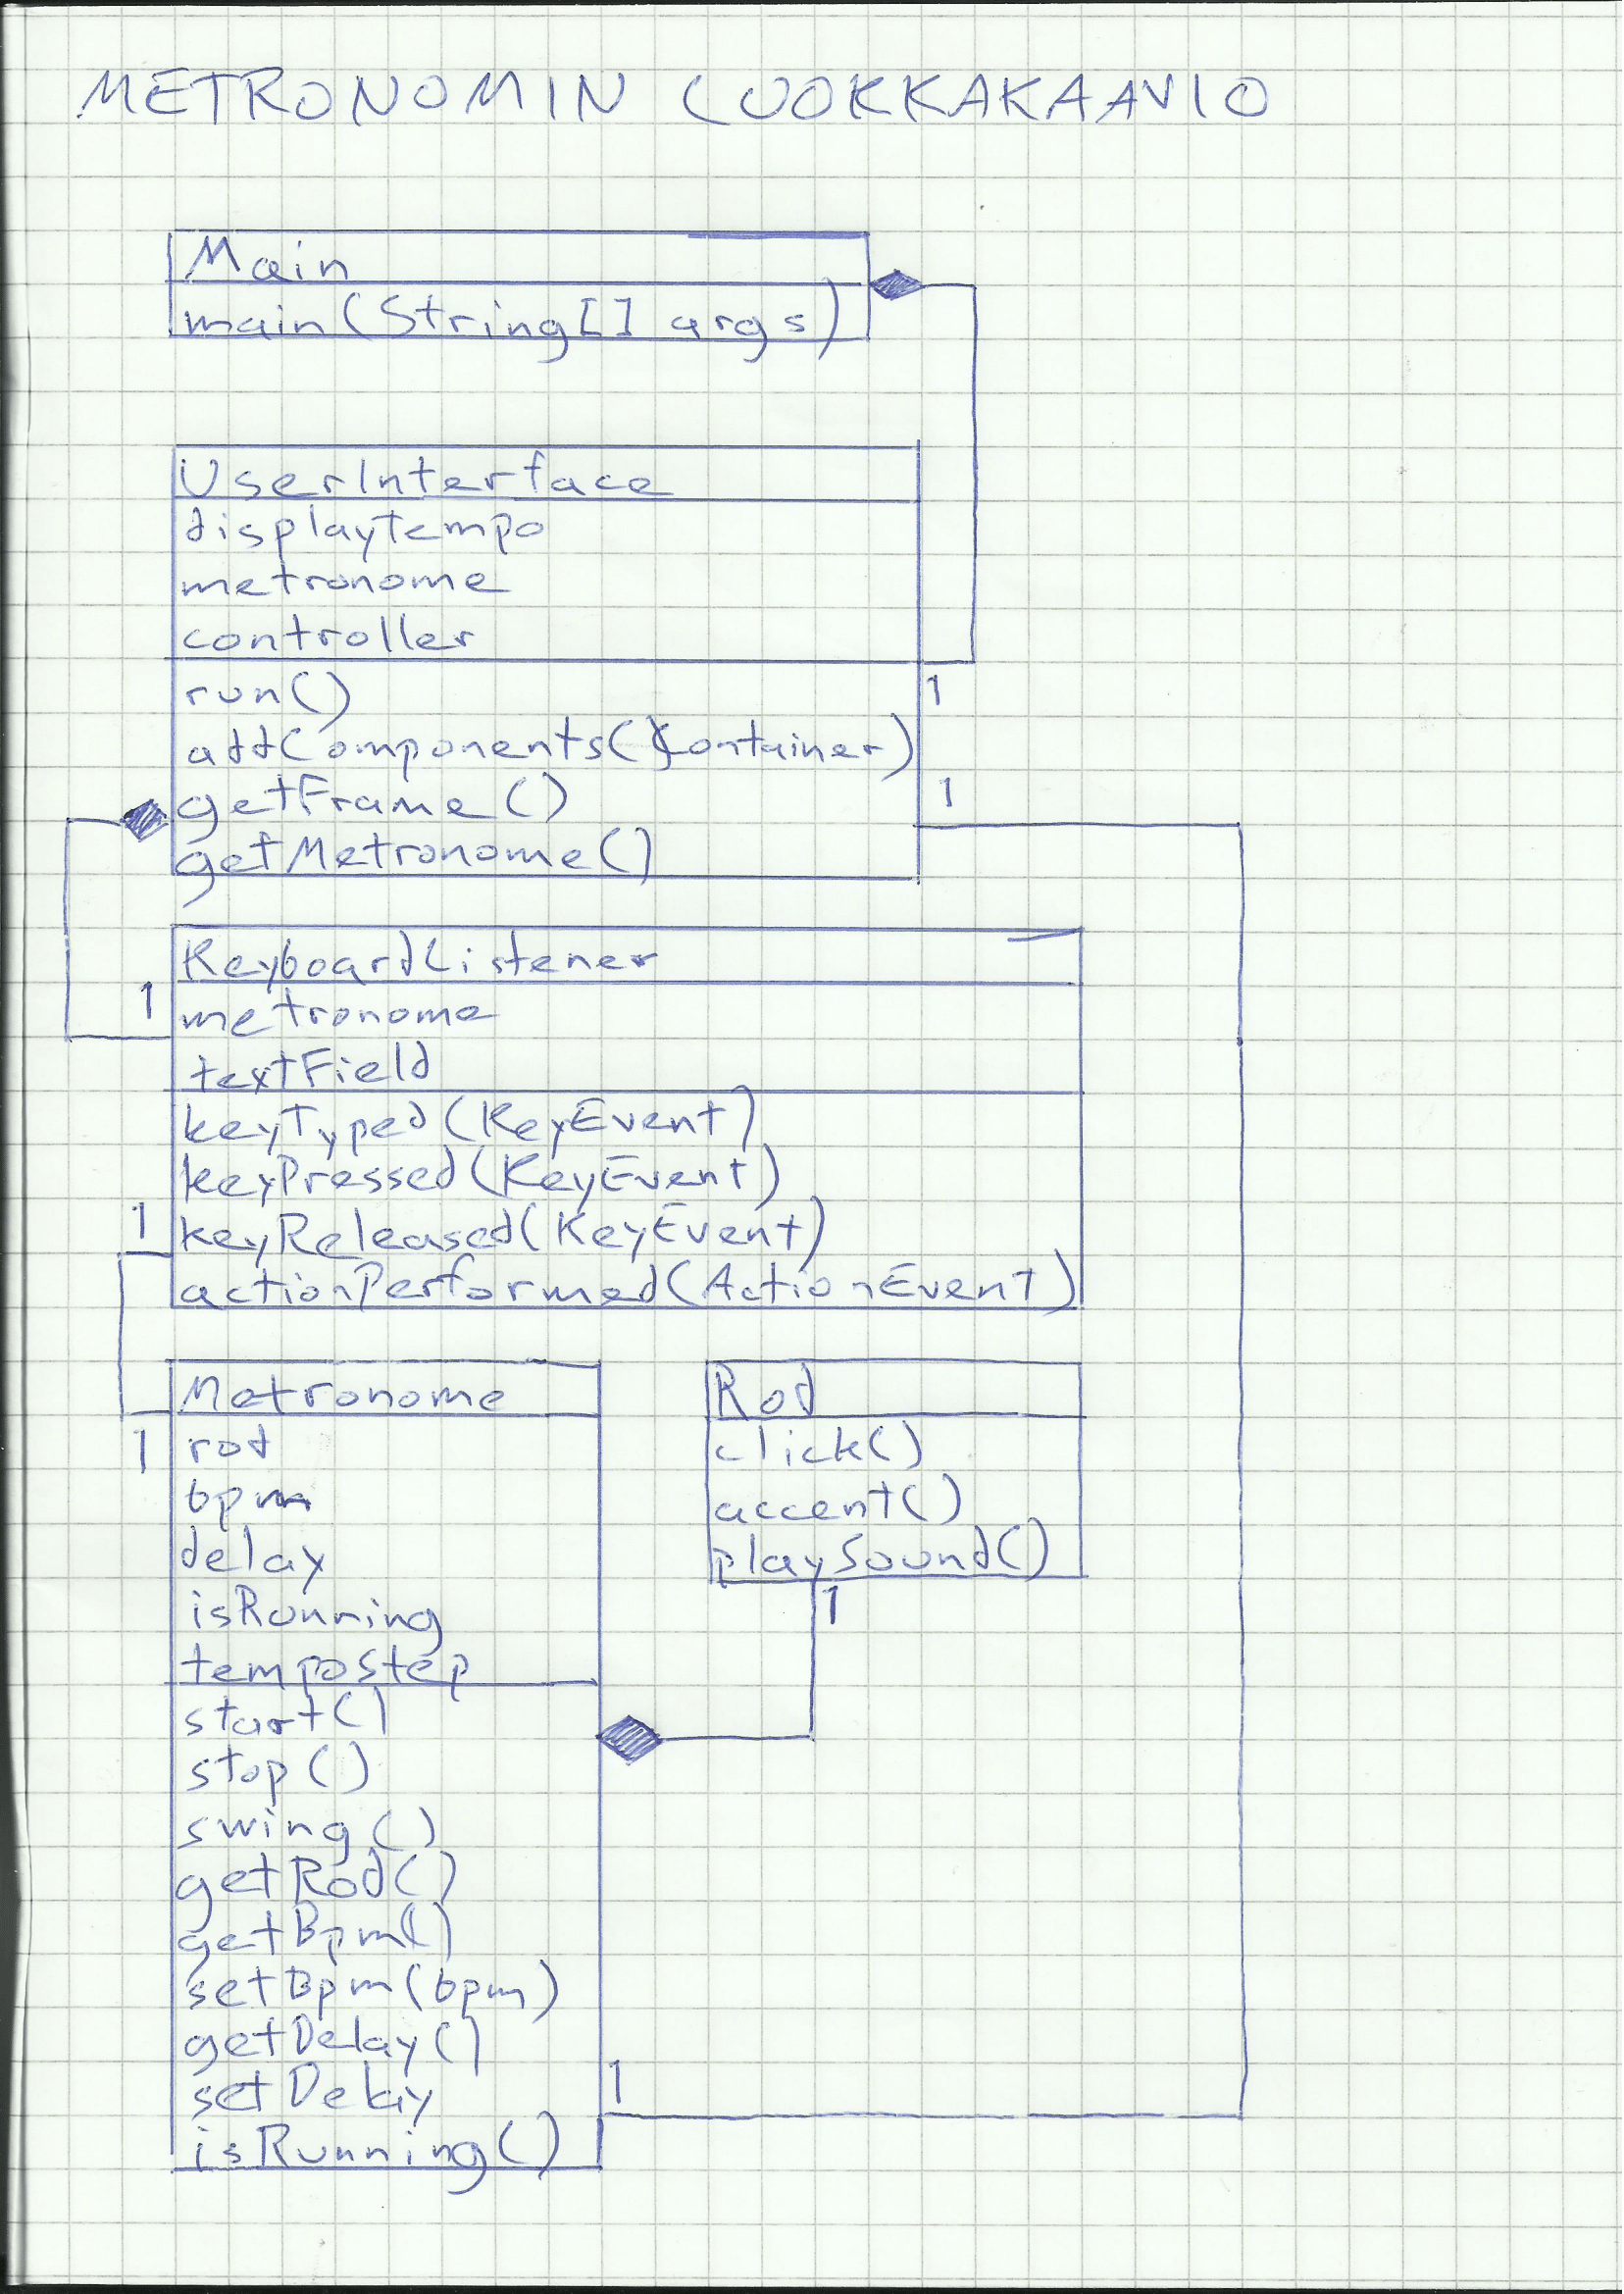 METRONOMIN LUOKKAKAAVIO
Main
main(String[] args)
UserInterface
displaytempo
metronome
controller
run()
1
addComponents(Container)
getFrame()
1
getMetronome()
KeyboardListener
1
metronome
textField
keyTyped(KeyEvent)
keyPressed(KeyEvent)
1
keyReleased(KeyEvent)
actionPerformed(ActionEvent)
Metronome
1
rod
bpm
delay
isRunning
tempoStep
start()
stop()
swing()
getRod()
getBpm()
setBpm(bpm)
getDelay()
setDelay
1
isRunning()
Rod
click()
accent()
playSound()
1